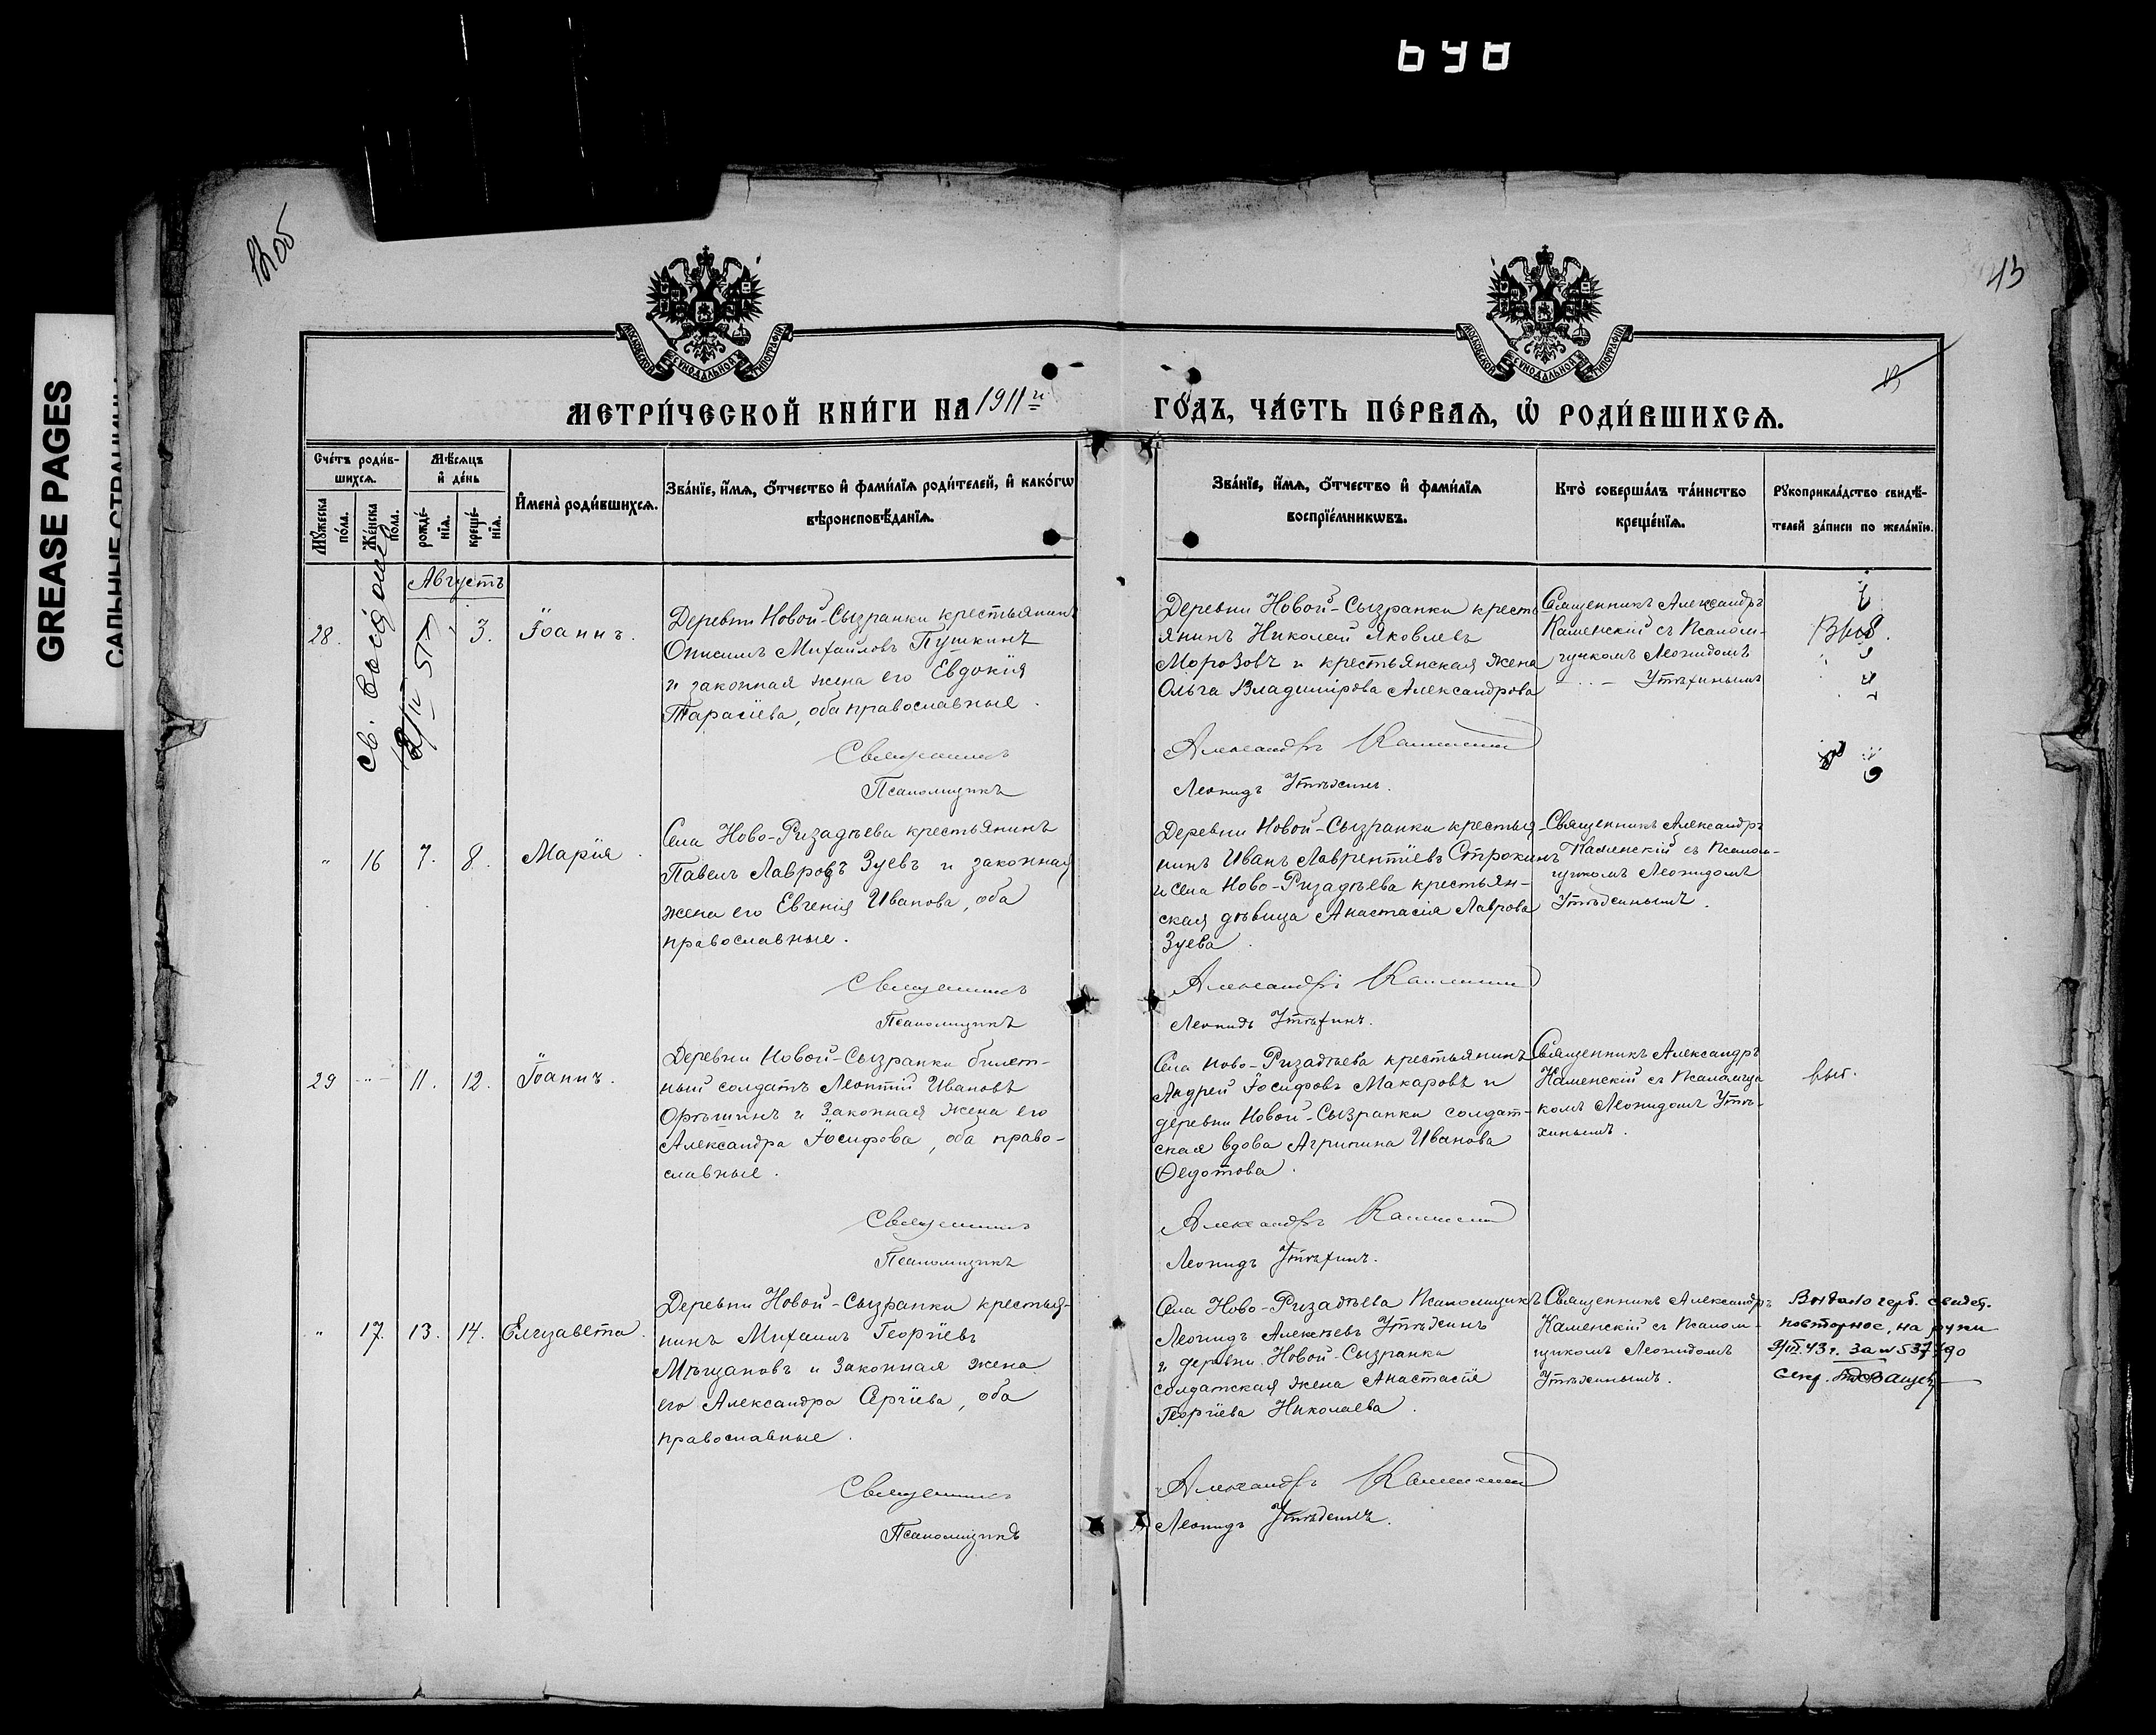 698
GREASE PAGES
САЛЬНЫЕ СТРАНИЦЫ
12об
13
МОСКОВСКОЙ СѴНОДАЛЬНОЙ ТИПОГРАФІИ
МОСКОВСКОЙ СѴНОДАЛЬНОЙ ТИПОГРАФІИ
МЕТРИ́ЧЕСКОЙ КНИ́ГИ НА 1911й
ГО́ДЪ, ЧА́СТЬ ПЕ́РВАѦ, Ѡ҆ РОДИ́ВШИХСѦ.
Сче́тъ роди́в-
шихсѧ.
Мꙋ́жеска по́ла.
Же́нска по́ла.
Мѣ́сѧцъ
и҆ де́нь
рожде́-
нїѧ.
креще́-
нїѧ.
И҆мена̀ роди́вшихсѧ.
Зва́нїе, и҆́мѧ, ѻ҆́тчество и҆ фами́лїѧ роди́телей, и҆ како́гѡ
вѣроисповѣ́данїѧ.
Зва́нїе, и҆́мѧ, ѻ҆́тчество и҆ фами́лїѧ
воспрїе́мникѡвъ.
Кто̀ соверша́лъ та́инство
креще́нїѧ.
Рꙋкоприкла́дство свидѣ́-
телей за́писи по жела́нїю.
Августъ
28.
3.
Іоаннъ.
Деревни Новой-Сызранки крестьянинъ
Онисимъ Михайловъ Пушкинъ
и законная жена его Евдокія
Тарасіева, оба православные.
Священникъ
Псаломщикъ
Деревни Новой-Сызранки кресть
янинъ Николай Яковлевъ
Морозовъ и крестьянская жена
Ольга Владимірова Александрова
Александръ Каменскій
Леонидъ Утѣхинъ.
Священникъ Александръ
Каменскій съ Псалом-
щикомъ Леонидомъ
Утѣхинымъ
"
16
7.
8.
Марія.
Села Ново-Ризадѣева крестьянинъ
Павелъ Лавровъ Зуевъ и законная
жена его Евгенія Иванова, оба
православные.
Священникъ
Псаломщикъ
Деревни Новой-Сызранки крестья
нинъ Иванъ Лаврентіевъ Строкинъ
и села Ново-Ризадѣева крестьян-
ская дѣвица Анастасія Лаврова
Зуева.
Александръ Каменскій
Леонидъ Утѣхинъ.
Священникъ Александръ
Каменскій съ Псалом-
щикомъ Леонидомъ
Утѣхинымъ.
29
11.
12.
Іоаннъ.
Деревни Новой-Сызранки билет-
ный солдатъ Леонтій Ивановъ
Орѣшинъ и законная жена его
Александра Іосифова, оба право-
славные.
Священникъ
Псаломщикъ
Села Ново-Ризадѣева крестьянинъ
Андрей Іосифовъ Макаровъ и
деревни Новой-Сызранки солдат-
ская вдова Агрипина Иванова
Ѳедотова.
Александръ Каменскій
Леонидъ Утѣхинъ.
Священникъ Александръ
Каменскій съ Псаломщи
комъ Леонидомъ Утѣ-
хинымъ.
выс.
"
17.
13.
14.
Елизавета.
Деревни Новой-Сызранки крестья-
нинъ Михаилъ Георгіевъ
Мѣщановъ и законная жена
его Александра Сергіева, оба
православные.
Священникъ
Псаломщикъ
Села Ново-Ризадѣева Псаломщикъ
Леонидъ Алексѣевъ Утѣхинъ
и деревни Новой-Сызранки
солдатская жена Анастасія
Георгіева Николаева.
Александръ Каменскій
Леонидъ Утѣхинъ.
Священникъ Александръ
Каменскій съ Псалом-
щикомъ Леонидомъ
Утѣхинымъ.
Выдано герб. свидет.
повторное, на руки